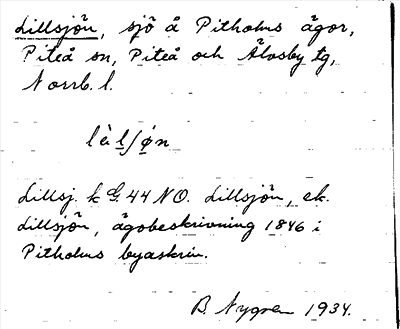 Lillsjön, sjö å Pitholms ägor,
Piteå sn, Piteå och Älvsby tg,
Norrb. l.
lìlʃø̀n
Lillsj. k G. 44 NO. Lillsjön, ek.
Lillsjön, ägobeskrivning 1846 i
Pitholms byaskrin.
B. Nygren 1934.